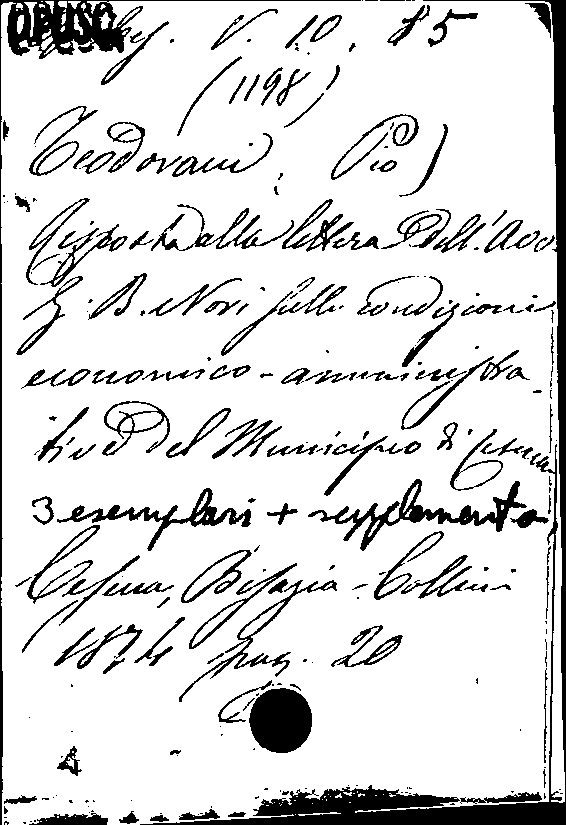 OPUSC V. 10. 85
(1198)
Teodorani, Pio)
Risposta alla lettera dell'Avv.
G. B. Nori sulle condizioni
economico-amministra-
tive del Municipio di Cesena
3 esemplari + supplemento
Cesena, Bisazia-Collini
1874 pag. 20